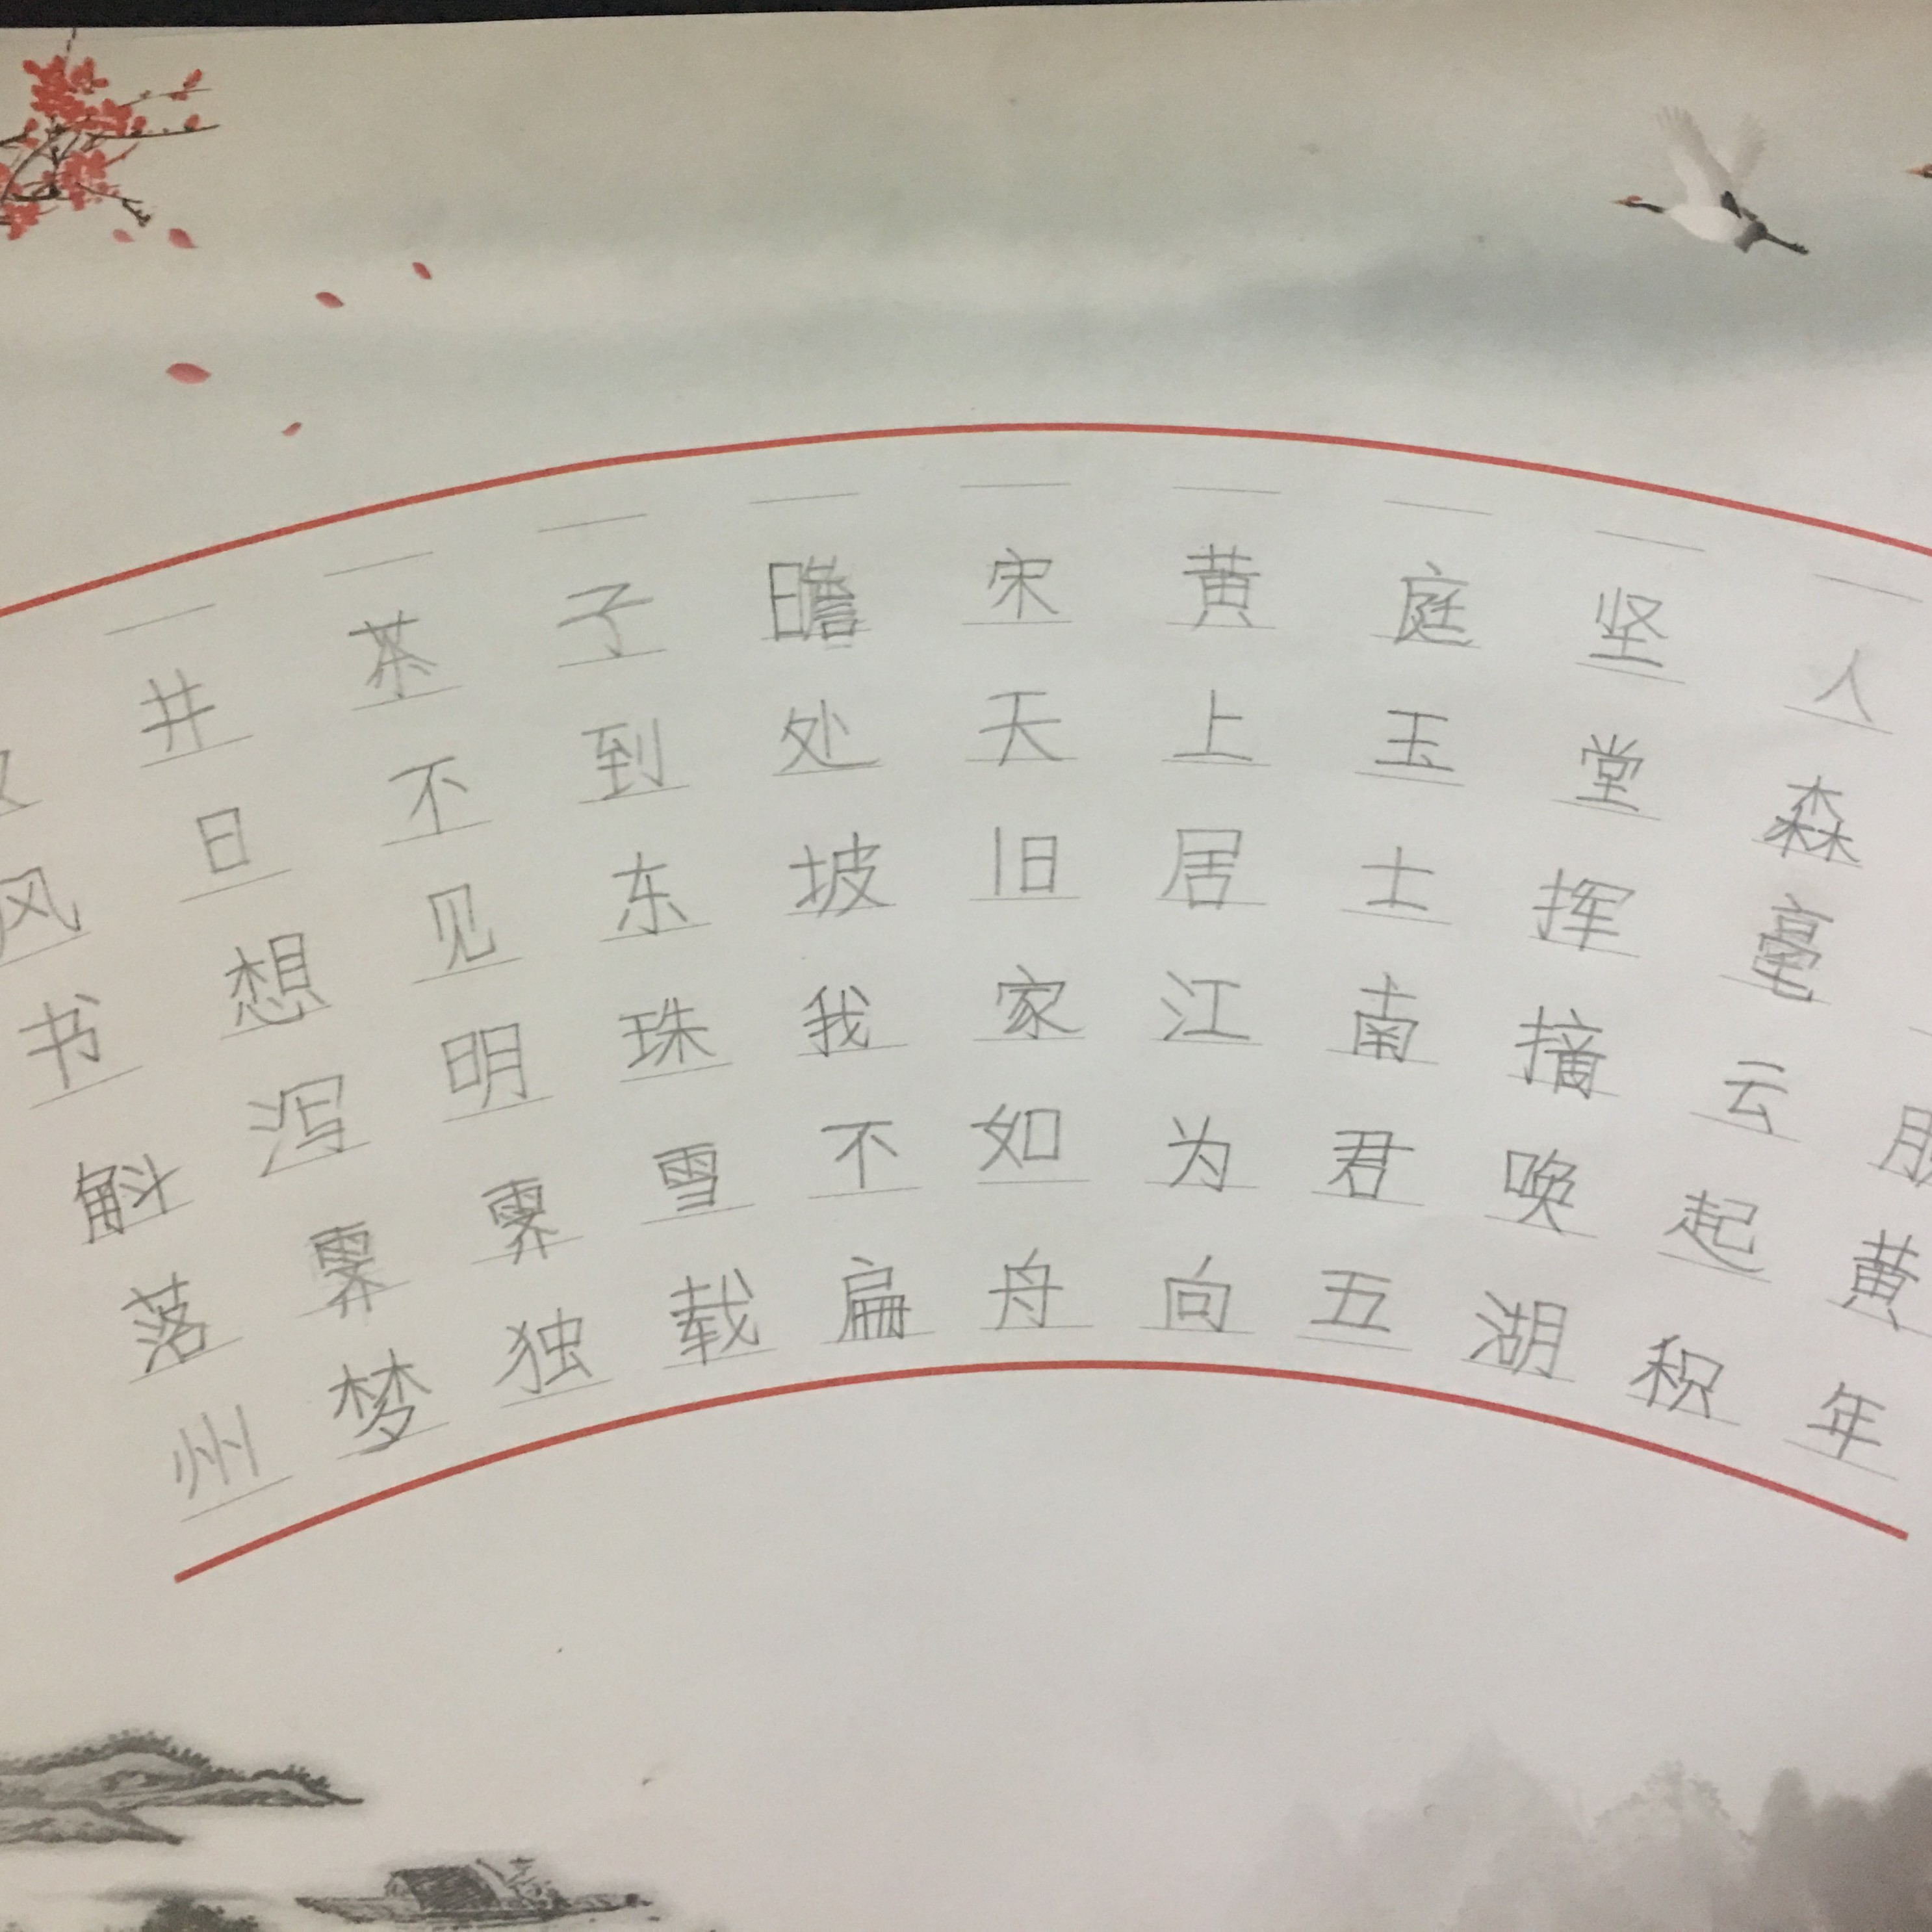 井茶子瞻宋黄庭坚人
风日不到处天上玉堂森
书想见东坡旧居士挥毫
斛泻明珠我家江南摘云
落霁霁雪不如为君唤起黄
州梦独载扁舟向五湖积年